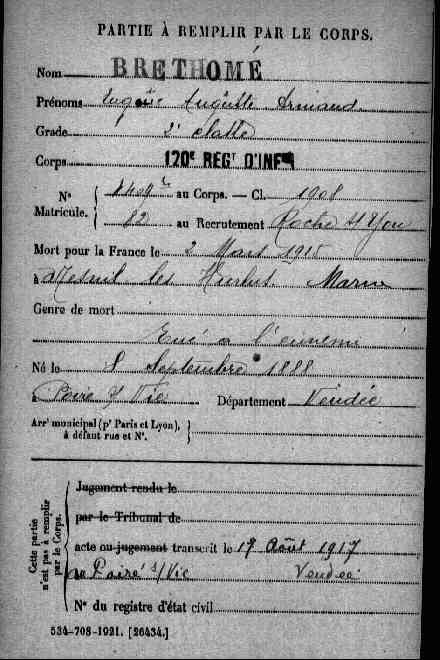 PARTIE À REMPLIR PAR LE CORPS.
Nom BRETHOMÉ
Prénoms Eugène Auguste Armand
Grade 2e classe
Corps 120e REGt D'INFie
Nos Matricule. 8409 au Corps. — Cl. 1908
82 au Recrutement Roche s/ Yon
Mort pour la France le 2 Mars 1915
à Mesnil les Hurlus. Marne
Genre de mort
Tué à l'ennemi
Né le 8 Septembre 1888
à Poiré s/ Vie Département Vendée
Arrt municipal (pr Paris et Lyon),
à défaut rue et No.
Cette partie n'est pas à remplir par le Corps.
Jugement rendu le
par le Tribunal de
acte ou jugement transcrit le 17 Août 1917
au Poiré s/ Vie Vendée
No du registre d'état civil
534-708-1921. [26434.]